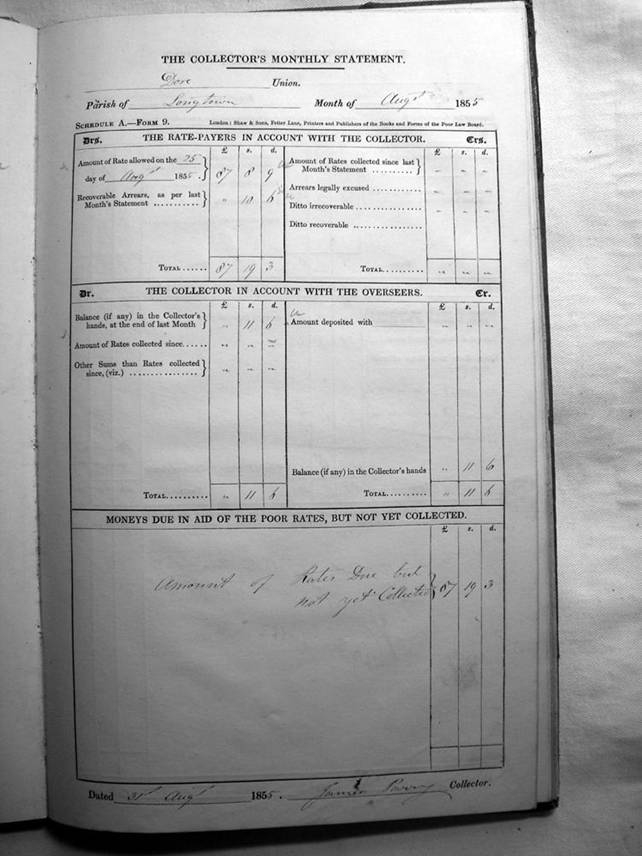 THE COLLECTOR'S MONTHLY STATEMENT.
Dore Union.
Parish of Longtown Month of Augst 1855
SCHEDULE A.—FORM 9. London: Shaw & Sons, Fetter Lane, Printers and Publishers of the Books and Forms of the Poor Law Board.
Drs. THE RATE-PAYERS IN ACCOUNT WITH THE COLLECTOR. Crs.
£ s. d. £ s. d.
Amount of Rate allowed on the 25
day of Augst 1855. } 87 8 9
Amount of Rates collected since last
Month's Statement .......... } „ „ „
Recoverable Arrears, as per last
Month's Statement ........... } „ 10 6
Arrears legally excused ............... „ „ „
Ditto irrecoverable .................... „ „ „
Ditto recoverable ....................
TOTAL ...... 87 19 3 TOTAL.......... „ „ „
Dr. THE COLLECTOR IN ACCOUNT WITH THE OVERSEERS. Cr.
£ s. d. £ s. d.
Balance (if any) in the Collector's
hands, at the end of last Month } „ 11 6
Amount of Rates collected since...... „ „ „
Other Sums than Rates collected
since, (viz.) ................ } „ „ „
Amount deposited with „ „ „
Balance (if any) in the Collector's hands „ 11 6
TOTAL.......... „ 11 6 TOTAL.......... „ 11 6
MONEYS DUE IN AID OF THE POOR RATES, BUT NOT YET COLLECTED.
£ s. d.
Amount of Rates Due but
not yet Collected } 87 19 3
Dated 31st Augst 1855. James Collector.